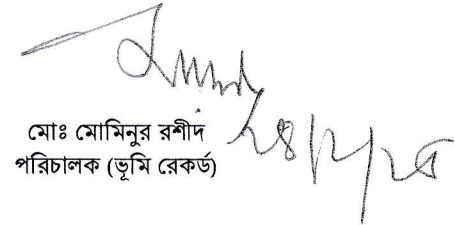 মোঃ মোমিনুর রশীদ
পরিচালক (ভূমি রেকর্ড)